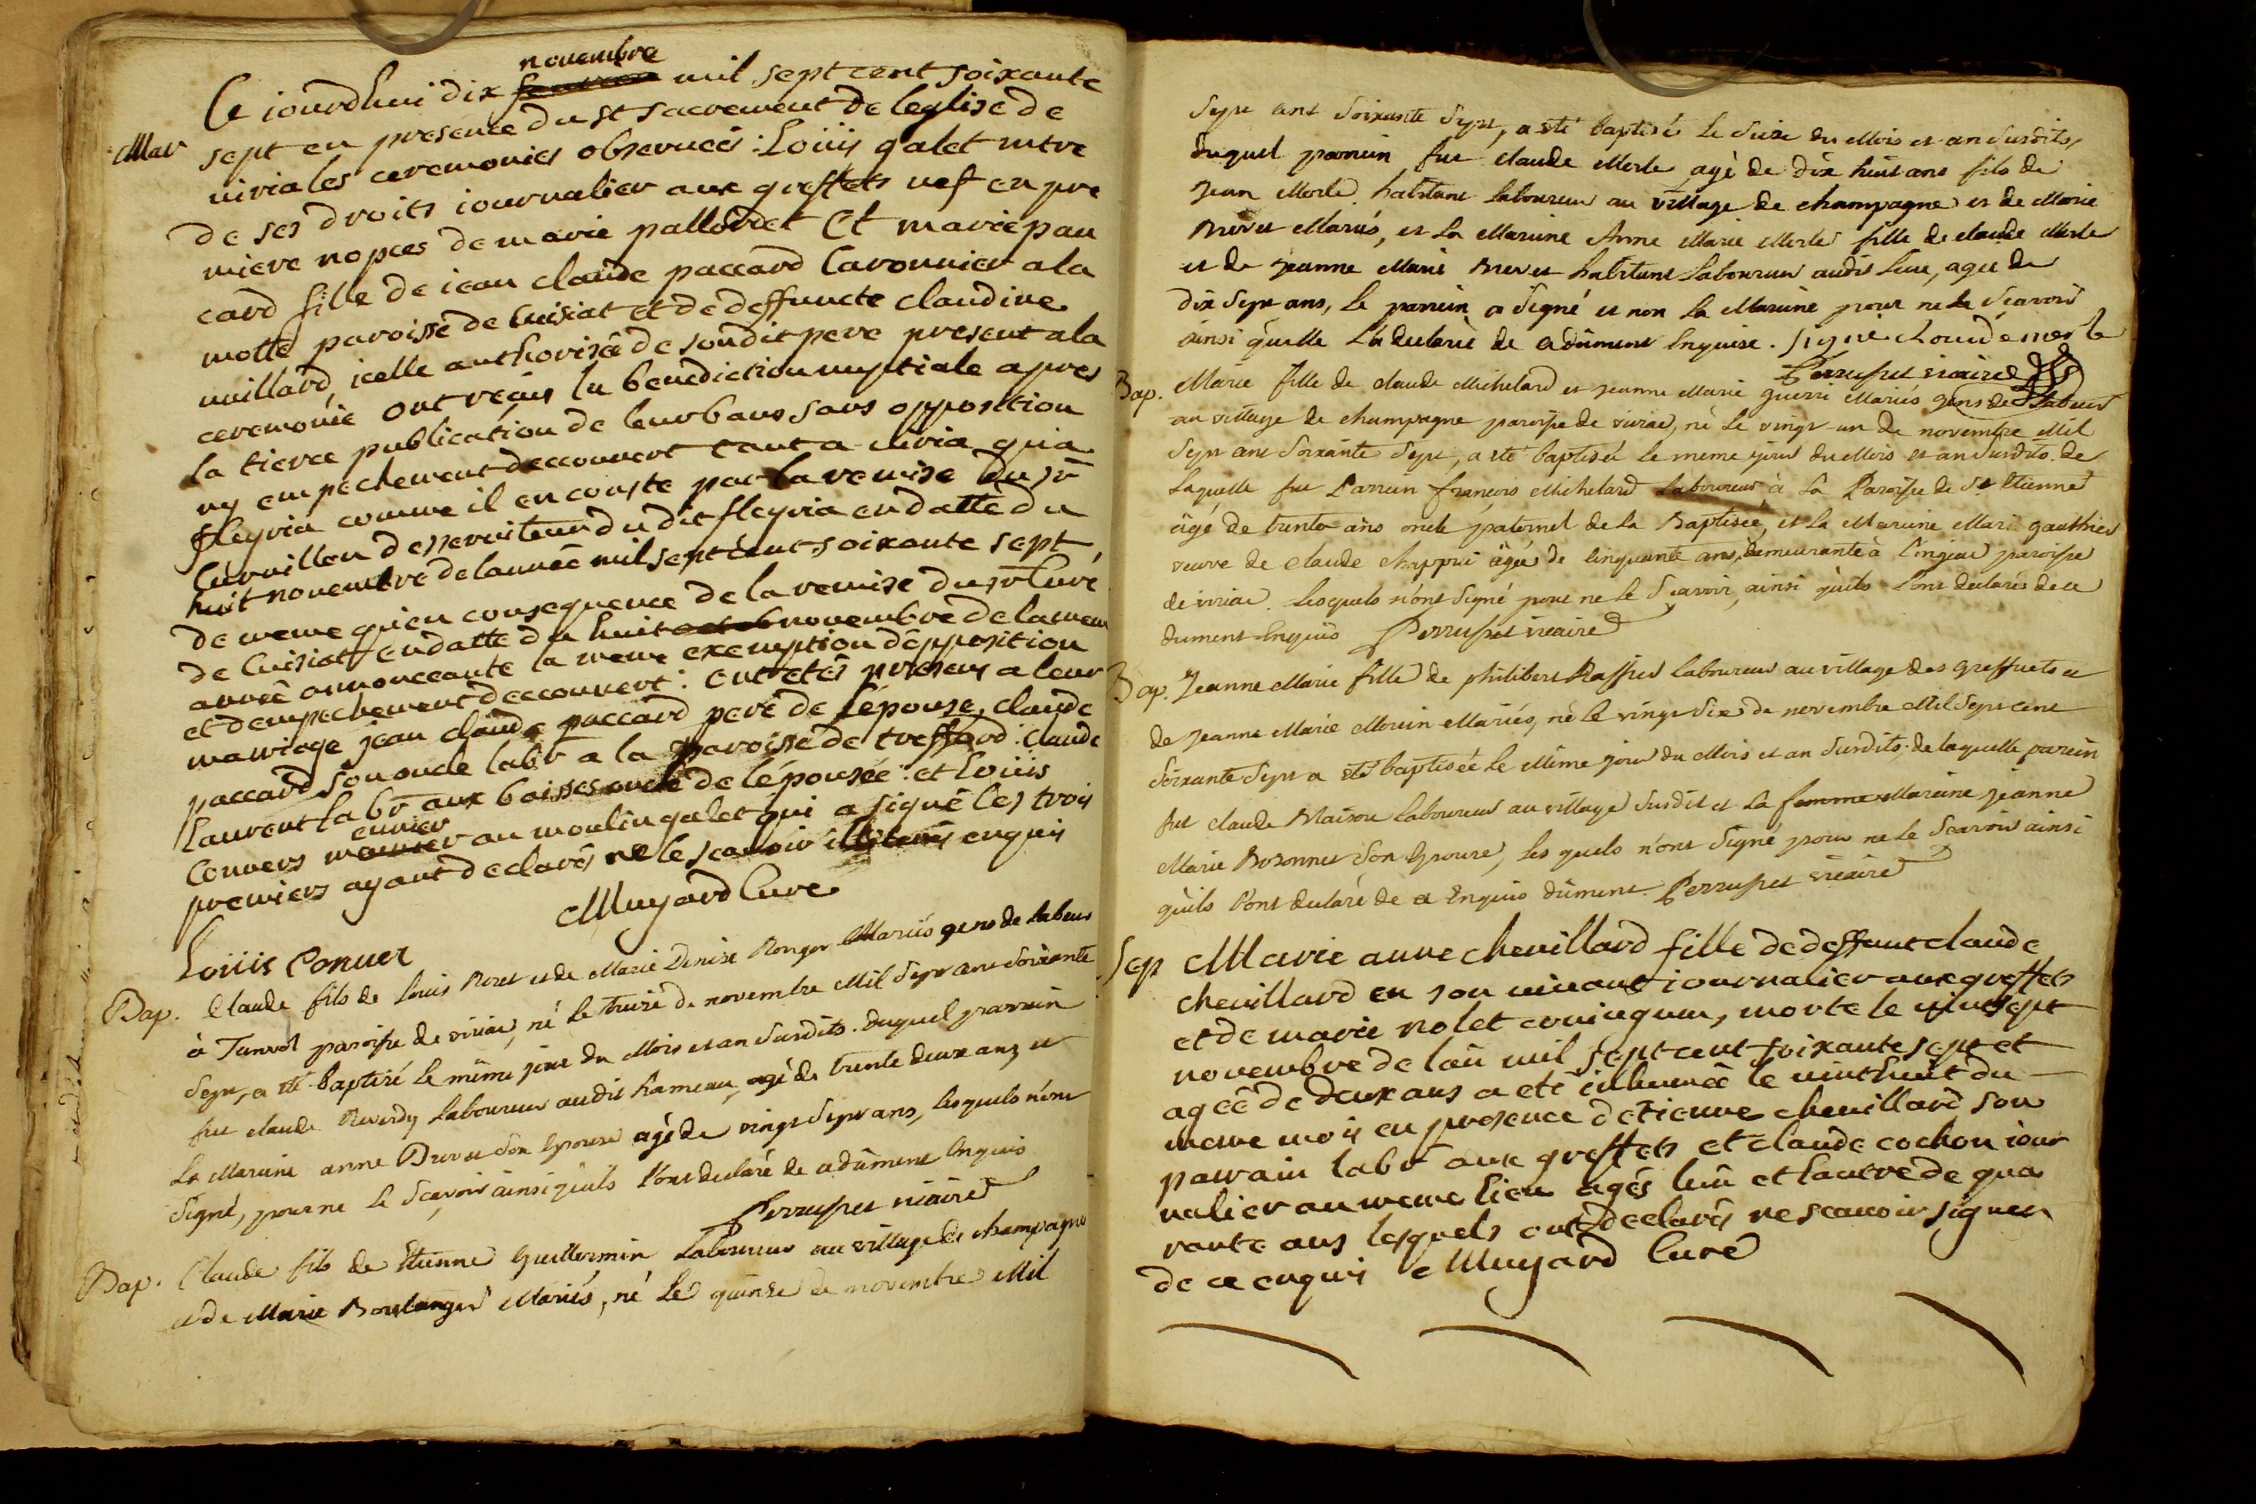 novembre
Ce iourdhui dix mil sept cent soixante
Mar sept en presence du st sacrement de leglise de
viria les ceremonies observeés : Loüis galet mtre
de ses droits iournalier aux greffets vef en pre
miere nopces de marie pallordet Et marie pau
card fille de iean claude paccard Charonnier a la
motte paroisse de Cuisiat et de deffuncte claudine
vuillard, icelle authorisée de son dit pere present a la
ceremonie ont reçus la benediction nuptiale apres
la tierce publication de leur bans sans opposition
ny empechement decouvert tant a viria qua
fleyria comme il en conste par la remise du sr
Curvillon desserviteur du dit fleyria en datte du
huit novembre de lanneé mil sept cent soixante sept,
de meme quen consequence de la remise du sr Curé
de Cuisiat en datte du huit novembre de la mem
anneé annonceante la meme exemption dopposition
et dempechement decouvert : ont etés presens a leur
mariage jean claude paccard pere de l'épouse, claude
paccard son oncle labr a la paroisse de trefford. claude
Laurent labr aux boisses oncle de lépouseé : et Loüis
euvrier
Convers au moulin galet qui a signé les trois
premiers ayant declarés ne le scavoir enquis
Muyard Curé
Loüis Conver
Bap. Claude fils de Louis Roret et de Marie Denise Ronger Mariés gens de labeur
à Tanvol paroisse de viriac, né le treize de novembre Mil Sept cent Soixante
Sept, a été baptisé le même jour du Mois et an Susdits. duquel parrain
fut claude Reverdy Laboureur audit hameau, agé de trente deux ans et
La Maraine anne Brevet Son Epouse agé de vingt Sept ans, lesquels n'ont
Signé, pour ne le Scavoir ainsi qu'ils l'ont declaré de ce dûment Enquis
Perruset vicaire
Bap. Claude fils de Etienne Guillermin Laboureur au village de champagne
et de Marie Boulanger Mariés, né Le quinze de novembre Mil
Sept cent Soixante Sept, a été baptisé Le Seize du Mois et an Susdits,
duquel parrain fut claude Merle agé de dix huit ans fils de
Jean Merle habitant laboureur au village de champagne et de Marie
Brevet Mariés, et La Maraine Anne Marie Merle fille de claude Merle
et de Jeanne Marie Brevet habitant Laboureur audit Lieu, ageé de
dix Sept ans, Le parrain a Signé et non La Maraine pour ne le Scavoir
ainsi quelle L'a declaré de ce dûment Enquise. signé Cloude merle
Perruset vicaire
Bap. Marie fille de claude Michelard et Jeanne Marie guerri Mariés gens de labeur
au village de champagne paroisse de viriac, né Le vingt un de novembre Mil
Sept cent Soixante Sept, a été baptiseé le meme jour du Mois et an Susdits. de
Laquelle fut Parrain françois Michelard Laboureur à La Paroisse de St Etienne
âgé de trente ans oncle paternel de la Baptiseé, et La Maraine Marie gauthier
veuve de claude chappui âgeé de cinquante ans, demeurante à Cingeat paroisse
de viriac. lesquels n'ont Signé pour ne le Scavoir, ainsi qu'ils l'ont declarés de ce
dument Enquis Perruset vicaire
Bap. Jeanne Marie fille de philibert Raffin laboureur au village des Greffuets et
de Jeanne Marie Morin Mariés, né le vingt Six de novembre Mil Sept cent
Soixante Sept a été baptiseé le Même jour du Mois et an Susdits. de laquelle parain
fut claude Maison Laboureur au village Susdit et La Maraine Jeanne
Marie Bozonnet Son Epouse, les quels n'ont Signé pour ne le Scavoir ainsi
qu'ils l'ont declaré de ce Enquis dûment. Perruset vicaire
Sep Marie anne chevillard fille de deffunt claude
chevillard en son vivant iournalier aux greffets
et de marie nolet convinqueur, morte le vint sept
novembre de lan mil sept cent soixante sept et
ageé de deux ans a eté inhumeé le vinthuit du
meme mois en presence detienne chevillard son
parrain labr aux greffets et claude cochon iour
nalier au meme lieu agés lun et lautre de qua
rante ans lesquels ont declarés ne scavoir signer
de ce enquis Muyard Curé